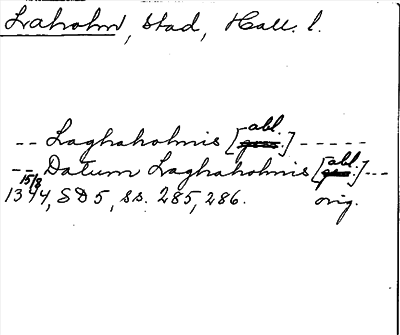 Laholm, stad, Hall. l.
-- Laghaholmis [abl.] -----
-- Datum Laghaholmis [abl.] ---
15/8
1344, SD 5, ss. 285, 286. orig.